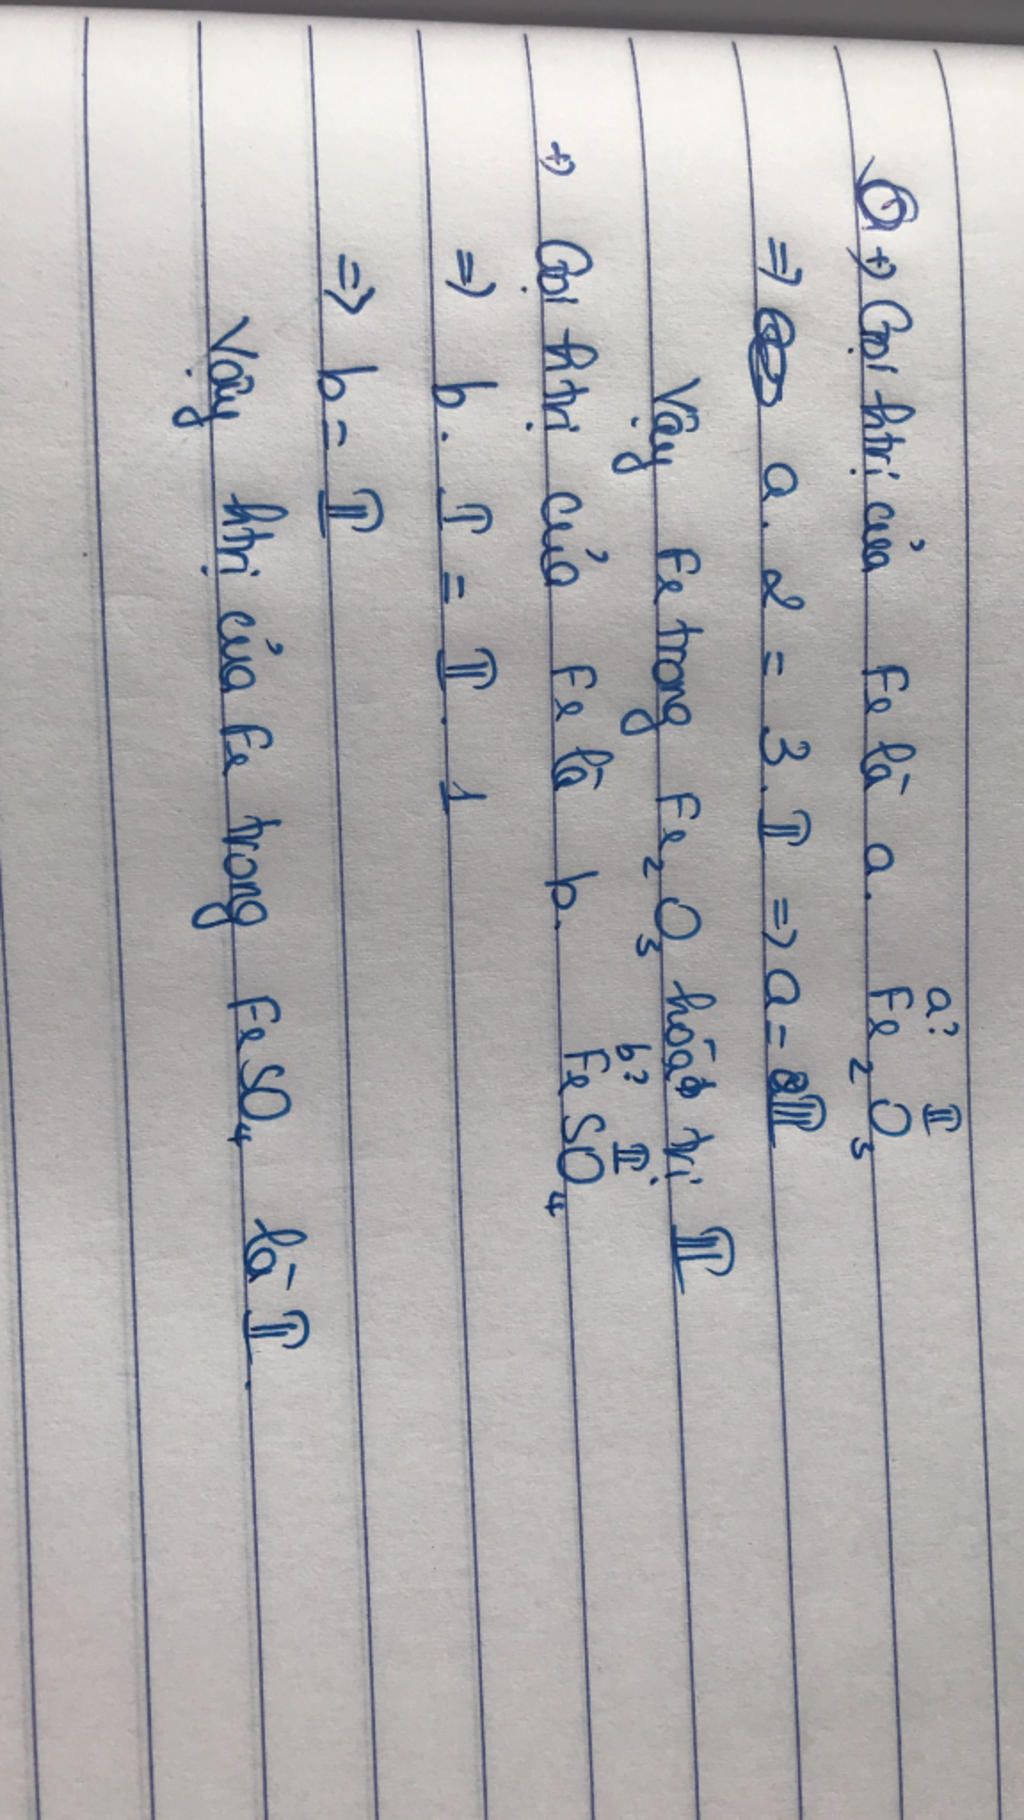 +) Gọi htrị của Fe là a. Fe₂O₃
a? II
=> a. 2 = 3. II => a = III
Vậy Fe trong Fe₂O₃ hoá trị III
+) Gọi htrị của Fe là b. FeSO₄
b? II
=> b. I = II. 1
=> b = II
Vậy htrị của Fe trong FeSO₄ là II.